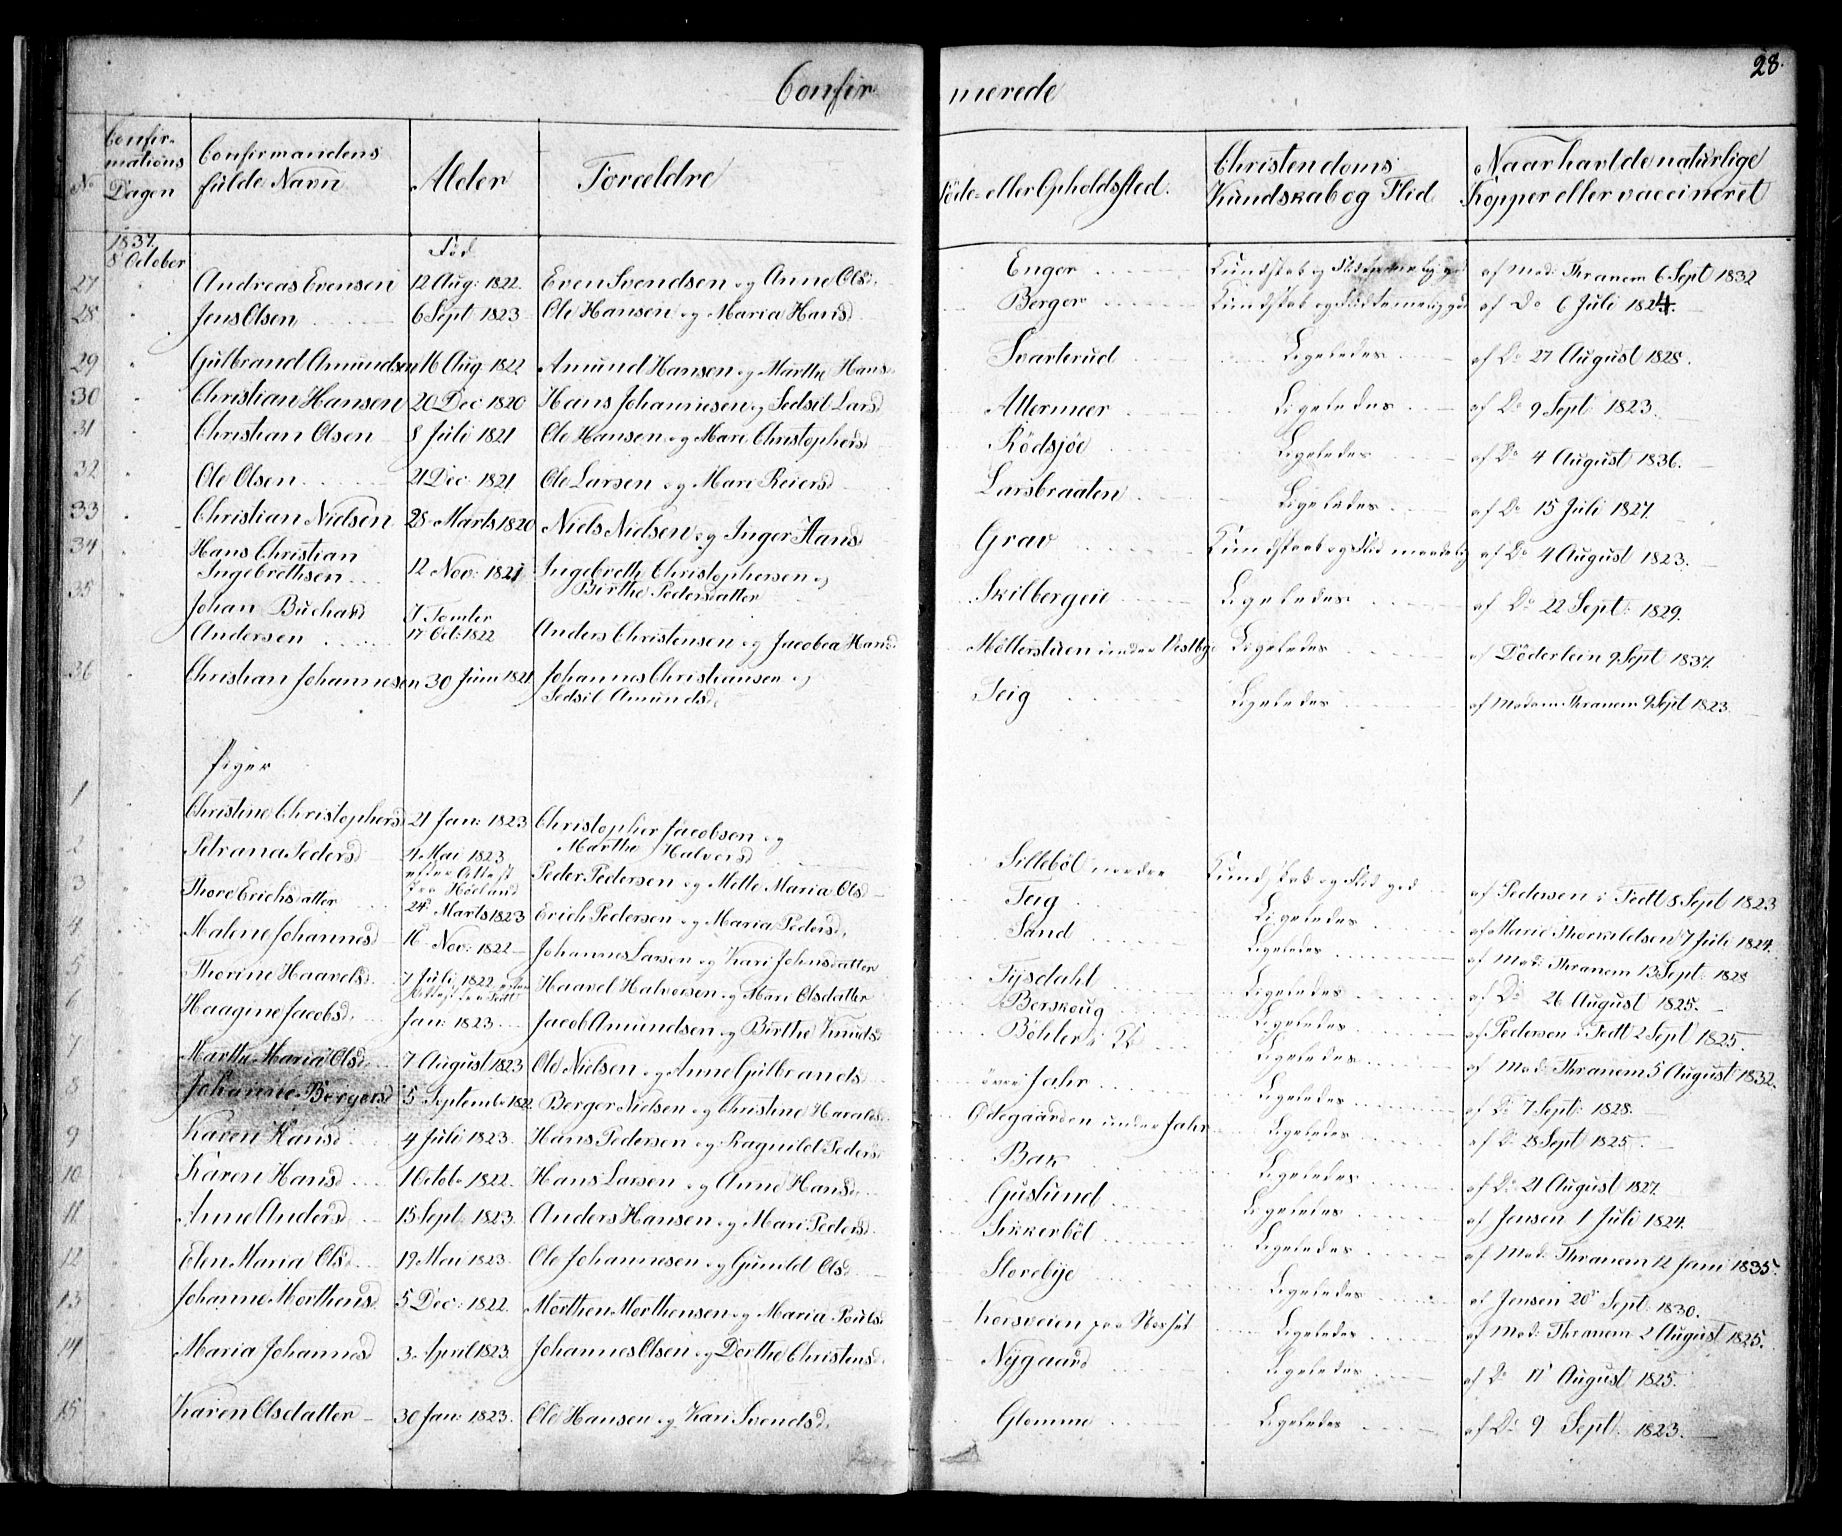 28.
Confir merede
No
Confir-
mations
Dagen
Confirmandens
fulde Navn
Alder
Foreldre
Föde- eller Opholdssted.
Christendoms
Kundskab og Flid
Naar havt de naturlige
Kopper eller vaccineret
1837.
8 October
Fød
27 Andreas Evensen 12 Aug: 1822. Even Svendsen og Anne Olsd. Enger Kundskab og Flid af Mad: Thranem 6 Sept 1832
28 Jens Olsen 6 Sept 1823 Ole Hansen og Maria Hansd. Berger Kundskab og Flid temmelig god af Do 6 Juli 1824.
29 Gulbrand Amundsen 16 Aug. 1822 Amund Hansen og Marthe Hansd. Svarterud Ligeledes af Do 27 August 1828.
30 Christian Hansen 20 Dec 1820 Hans Johannesen og Sedsil Larsd Attermeer Ligeledes af Do 9 Sept 1823.
31 Christian Olsen 8 Juli 1821 Ole Hansen og Mari Christophersd Rödsjöe Ligeledes af Do 4 August 1836.
32 Ole Olsen 21 Dec 1821 Ole Larsen og Mari Reiersd Larsbraaten Ligeledes af Do 15 Juli 1827.
33 Christian Nielsen 28 Marts 1820 Niels Nielsen og Inger Hansd Grav Kundskab og Flid maadelig af Do 4 August 1823.
34 Hans Christian
Ingebrethsen 12 Nov: 1821 Ingebreth Christophersen og
Birthe Pedersdatter Skilbergeie Ligeledes af Do 22 Sept: 1829.
35 Johan Buchard
Andersen I Tomter
17 Oct: 1822 Anders Christensen og Jacobea Hansd Møllerstuen under Vestbye Ligeledes af Döderlein 9 Sept 1837.
36 Christian Johannesen 30 Juni 1821 Johannes Christiansen og
Sedsil Amundsd. Teig Ligeledes af Madam Thranem 9 Sept 1823.
Piger
1 Christine Christophersd 21 Jan: 1823 Christopher Jacobsen og
Marthe Halvorsd Silleböl nordre Kundskab og Flid god af Pedersen i Fedt 8 Sept 1823
2 Petrana Pedersd 4 Mai 1823
efter Attest
fra Høeland Peder Pedersen og Mette Maria Olsd Teig Ligeledes af Marie Thorkildsen 7 Juli 1824.
3 Thore Erichsdatter 24 Marts 1823 Erich Pedersen og Maria Pedersd. Sand Ligeledes af Mad: Thranem 13 Sept: 1828
4 Malene Johannesd 16 Nov: 1822 Johannes Larsen og Kari Johnsdatter Tysdahl Ligeledes af Do 26 August 1825.
5 Thorine Haavelsd. 7 Juli 1822 efter
Attest fra Fedt Haavel Halvorsen og Mari Olsdatter Berskoug Ligeledes af Pedersen i Fedt 2 Sept 1825.
6 Haagine Jacobsd. Jan: 1823 Jacob Amundsen og Birthe Knudsd Böhler i Ligeledes af Mad: Thranem 5 August 1832.
7 Marthe Maria Olsd 7 August 1823 Ole Nielsen og Anne Gulbrandsd övre Jahr Ligeledes af Do 7 Sept: 1828.
8 Johanne Bergersd 5 September 1822 Berger Nielsen og Christine Haralds Ödegaarden under Jahr Ligeledes af Do 28 Sept 1825
9 Karen Hansd 4 Juli 1823. Hans Pedersen og Ragnild Pedersd Bak Ligeledes af Do 21 August 1827.
10 Karen Hansd. 1 Octob. 1822. Hans Larsen og Anne Hansd. Guslund Ligeledes af Jensen 1 Juli 1824.
11 Anne Andersd 15 Sept: 1823. Anders Hansen og Mari Pedersd. Sikkerböl Ligeledes af Mad: Thranem 12 Juni 1835.
12 Elen Maria Olsd. 19 Mai 1823. Ole Johannesen og Gunild Olsd Storebye Ligeledes af Jensen 20 Sept. 1830.
13 Johanne Morthensd. 5 Dec: 1822. Morthen Morthensen og Maria Poulsd. Korsveien paa Ligeledes af Mad: Thranem 2 August 1825.
14 Maria Johannesd 3. April 1823. Johannes Olsen og Dorthe Christensd. Nygaard Ligeledes af Do 11 August 1825.
15 Karen Olsdatter 30 Jan: 1823. Ole Hansen og Kari Svendsd. Glomme Ligeledes af Do 9 Sept. 1823.